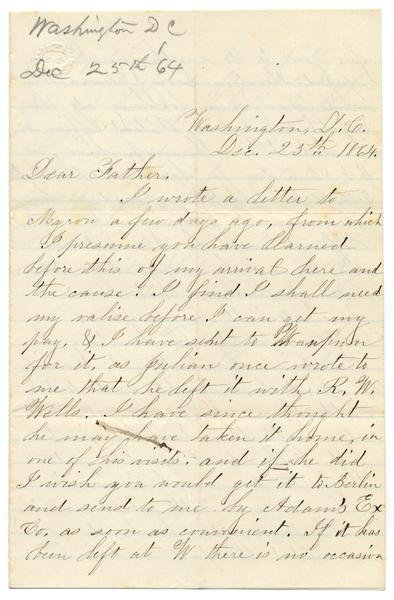 Washington D C
Dec 25th /64
Washington, D.C.
Dec. 25th 1864.
Dear Father.
I wrote a letter to
Myron a few days ago, from which
I presume you have learned
before this of my arrival here and
the cause. I find I shall need
my valise before I can get my
pay, & I have sent to
for it, as Julian once wrote to
me that he left it with R. W.
Wells. I have since thought
he may have taken it home, in
one of his visits: and if he did
I wish you would get it to Berlin
and send to me by Adam's Ex
Co. as soon as convenient. If it has
been left at W there is no occasion